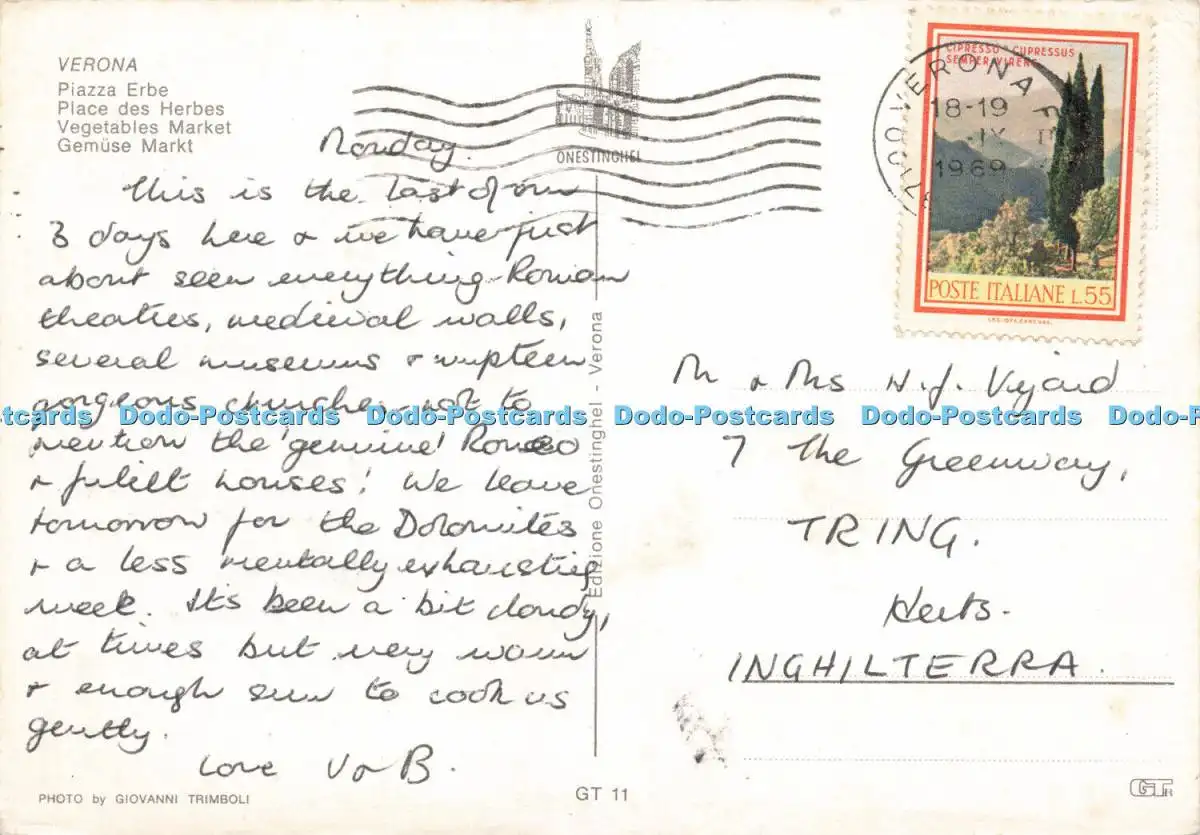 VERONA
Piazza Erbe
Place des Herbes
Vegetables Market
Gemüse Markt
ONESTINGHEL
37100 VERONA
18-19
IX
1969
CIPRESSO - CUPRESSUS
SEMPERVIRENS
POSTE ITALIANE L.55
Monday.
This is the last of our
3 days here & we have just
about seen everything - Roman
theatres, medieval walls,
several museums & umpteen
gorgeous churches not to
mention the 'genuine' Romeo
& Juliet houses! We leave
tomorrow for the Dolomites
& a less mentally exhausting
week. It's been a bit cloudy,
at times but very warm
& enough sun to cook us
gently.
Love V & B.
Edizione Onestinghel - Verona
M & Mrs H.J. Vizard
7 The Greenway,
TRING.
Herts.
INGHILTERRA.
Dodo-Postcards Dodo-Postcards Dodo-Postcards Dodo-Postcards Dodo-Postcards
PHOTO by GIOVANNI TRIMBOLI
GT 11
GT